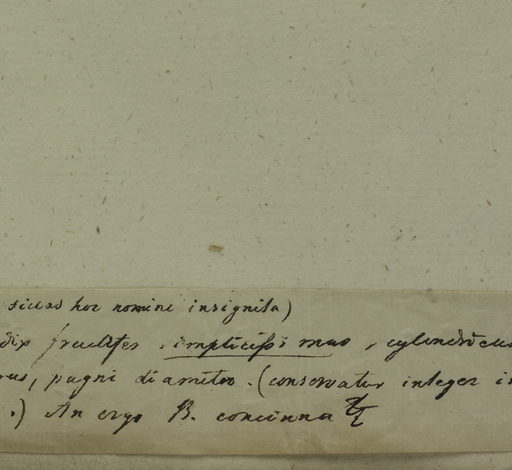 siccas hoc nomine insignita)
dix fructifer simplicissimus, cylindricus
pugni diametro. (conservatur integer i
.) An ergo B. concinna